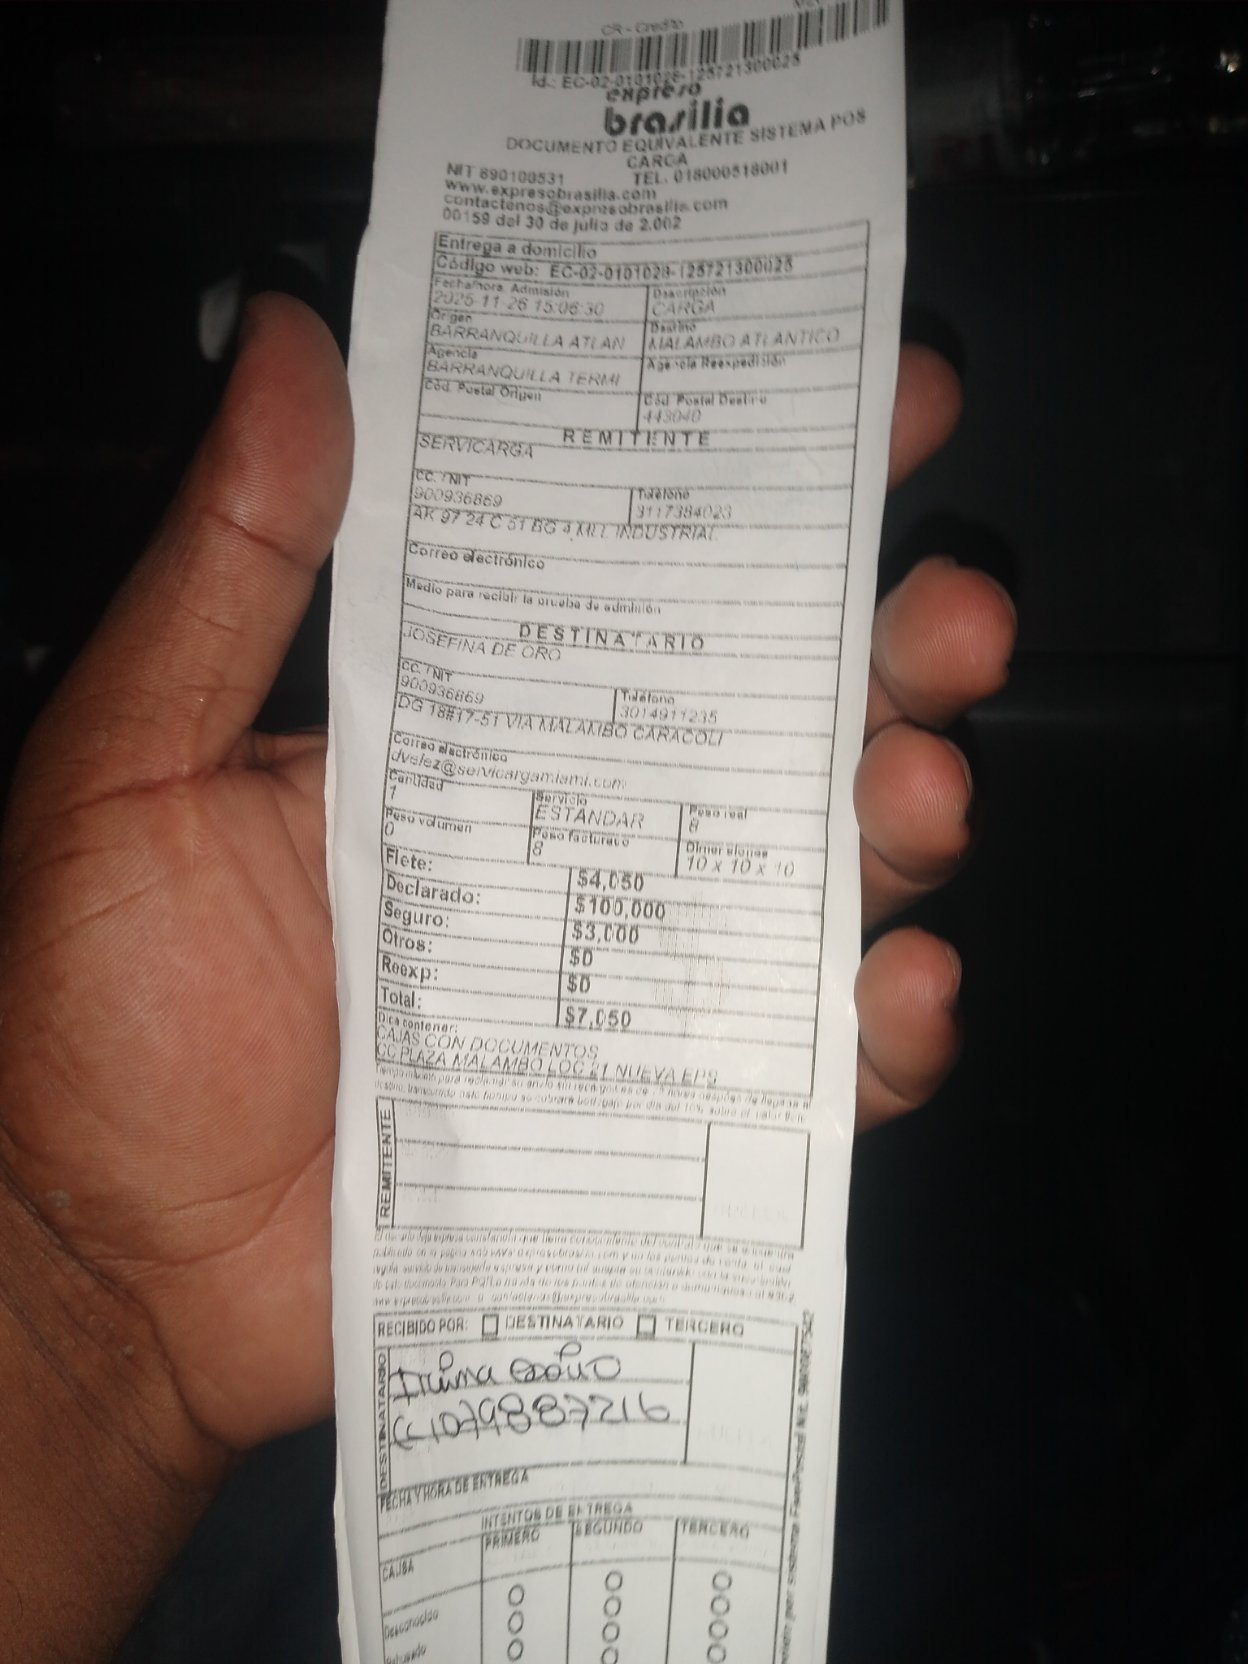 CR - Credito
Id.: EC-02-0101028-125721300025
expreso
brasilia
DOCUMENTO EQUIVALENTE SISTEMA POS
CARGA
NIT 890100531 TEL. 018000518001
www.expresobrasilia.com
contactenos@expresobrasilia.com
00159 del 30 de julio de 2.002
Entrega a domicilio
Código web: EC-02-0101028-125721300025
Fecha/hora Admisión Descripción
2025-11-26 15:06:30 CARGA
Origen Destino
BARRANQUILLA ATLAN MALAMBO ATLANTICO
Agencia Agencia Reexpedición
BARRANQUILLA TERMI
Cód. Postal Origen Cód Postal Destino
443040
REMITENTE
SERVICARGA
CC. / NIT Teléfono
900936869 3117384023
AK 97 24 C 51 BG 4 MLL INDUSTRIAL
Correo electrónico
Medio para recibir la prueba de admisión
DESTINATARIO
JOSEFINA DE ORO
CC. / NIT Teléfono
900936869 3014911235
DG 18#17-51 VIA MALAMBO CARACOLI
Correo electrónico
dvelez@servicargamiami.com
Cantidad Servicio Peso real
1 ESTANDAR 8
Peso volumen Peso facturado Dimensiones
0 8 10 x 10 x 10
Flete: $4,050
Declarado: $100,000
Seguro: $3,000
Otros: $0
Reexp: $0
Total: $7,050
Dice contener:
CAJAS CON DOCUMENTOS
CC PLAZA MALAMBO LOC 21 NUEVA EPS
REMITENTE
RECIBIDO POR: DESTINATARIO TERCERO
DESTINATARIO
CC 1079887216
FECHA Y HORA DE ENTREGA
INTENTOS DE ENTREGA
CAUSA PRIMERO SEGUNDO TERCERO
Desconocido
Rehusado